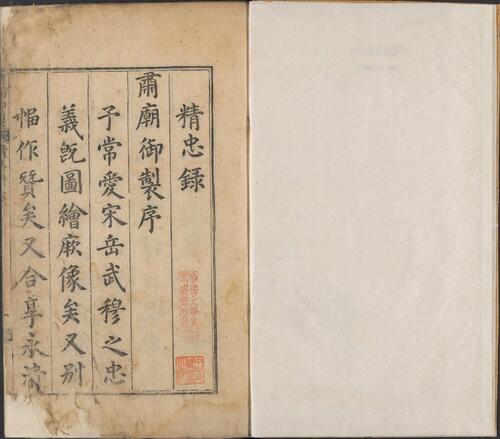 精忠錄
肅廟御製序
予常愛宋岳武穆之忠
義旣圖繪厥像矣又別
幅作贊矣又合享永